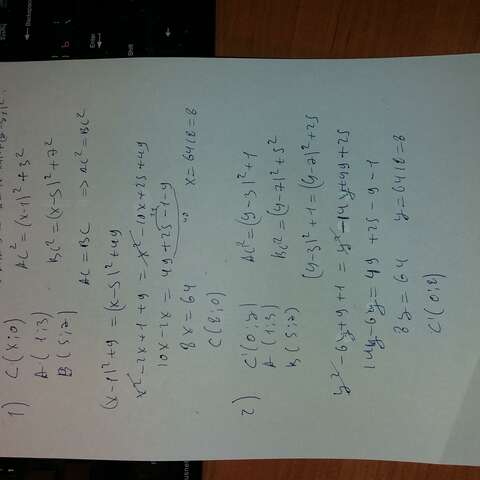 1) C(x;0) AC² = (x-1)² + 3²
A(1;3)
B(5;7) BC² = (x-5)² + 7²
AC = BC ⇒ AC² = BC²
(x-1)² + 9 = (x-5)² + 49
x² - 2x + 1 + 9 = x² - 10x + 25 + 49
10x - 2x = 49 + 25 - 1 - 9
8x = 64 x = 64/8 = 8
C(8;0)
2) C'(0;y) AC² = (y-3)² + 1
A(1;3)
B(5;7) BC² = (y-7)² + 5²
(y-3)² + 1 = (y-7)² + 25
y² - 6y + 9 + 1 = y² - 14y + 49 + 25
14y - 6y = 49 + 25 - 9 - 1
8y = 64 y = 64/8 = 8
C'(0;8)
Enter